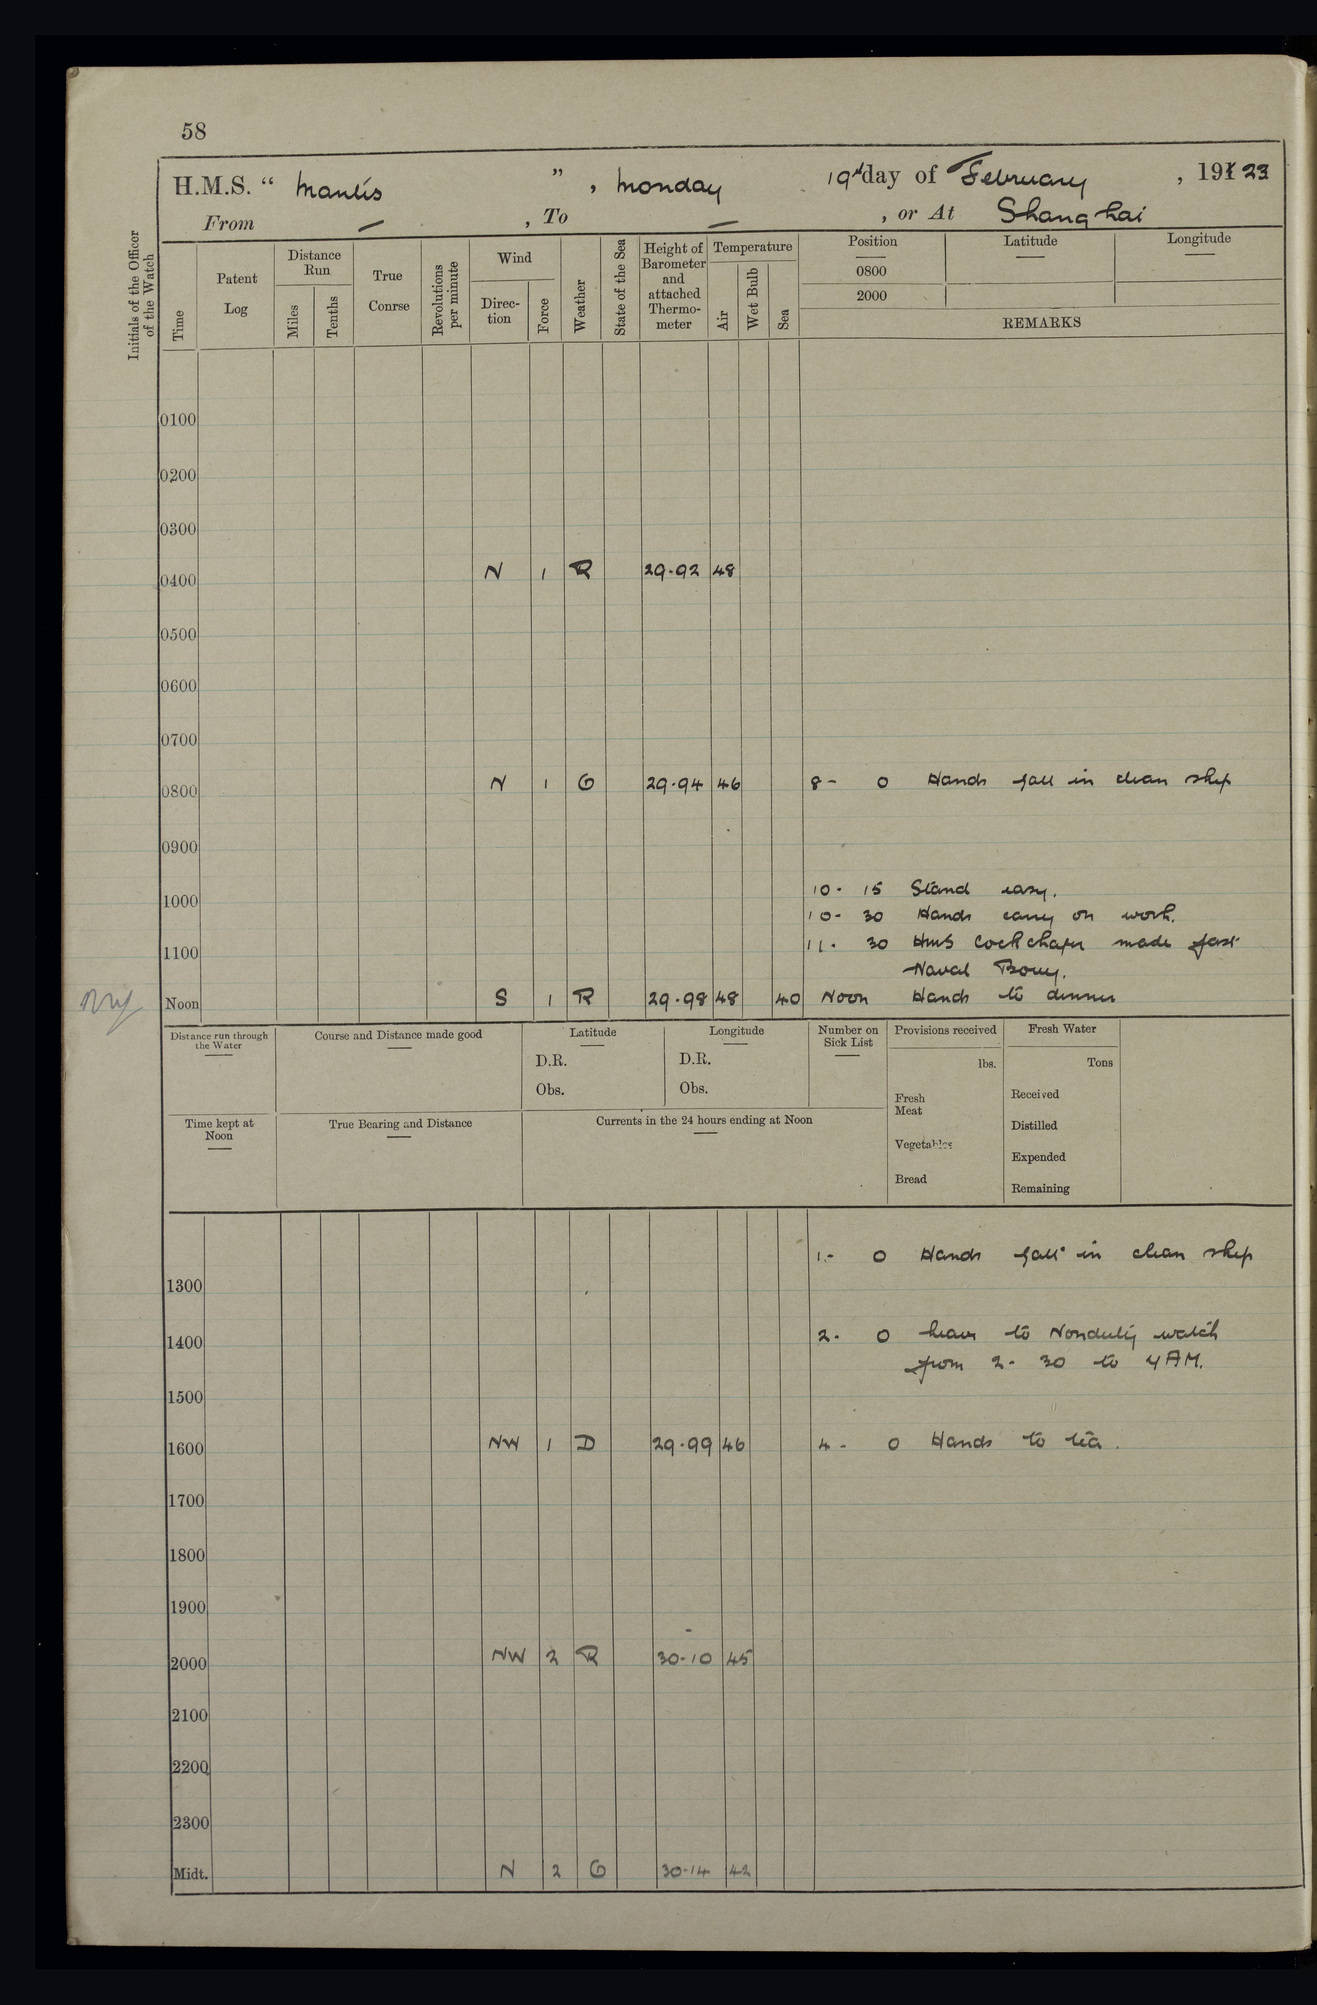 58
H.M.S. “ Mantis ” , Monday 19th day of February , 191 23
From — , To — , or At Shanghai
Initials of the Officer of the Watch
Time
Patent Log
Distance Run
Miles
Tenths
True Conrse
Revolutions per minute
Wind
Direc- tion
Force
Weather
State of the Sea
Height of Barometer and attached Thermo- meter
Temperature
Air
Wet Bulb
Sea
Position
Latitude
Longitude
0800
2000
REMARKS
0100
0200
0300
0400 N 1 R 29.92 48
0500
0600
0700
0800 N 1 G 29.94 46 8 - 0 Hands fall in clean ship
0900
10 - 15 Stand easy.
1000
10 - 30 Hands carry on work.
1100 11 - 30 HMS Cockchafer made fast
Naval Bouy.
Noon S 1 R 29.98 48 40 Noon Hands to dinner
Distance run through the Water
Course and Distance made good
Latitude
D.R.
Obs.
Longitude
D.R.
Obs.
Number on Sick List
Provisions received
lbs.
Fresh Meat
Vegetables
Bread
Fresh Water
Tons
Received
Distilled
Expended
Remaining
Time kept at Noon
True Bearing and Distance
Currents in the 24 hours ending at Noon
1 - 0 Hands fall in clean ship
1300
1400 2 - 0 leave to Nonduty watch
from 2 - 30 to 4 AM.
1500
1600 NW 1 D 29.99 46 4 - 0 Hands to tea.
1700
1800
1900
2000 NW 2 R 30.10 45
2100
2200
2300
Midt. N 2 G 30.14 42